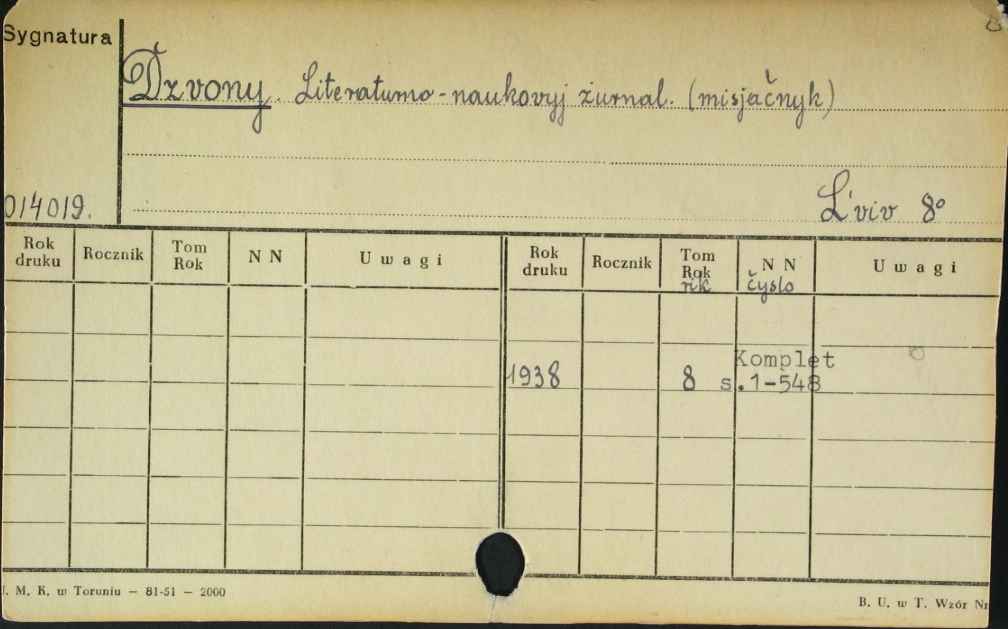 Sygnatura
Dzvony. Literaturno-naukovyj žurnal. (misjačnyk)
014019.
L'viv 8°
Rok druku Rocznik Tom Rok N N Uwagi Rok druku Rocznik Tom Rok rik N N čyslo Uwagi
Komplet
1938 8 s.1-548
M. K. w Toruniu — 81-51 — 2000
B. U. w T. Wzór Nr